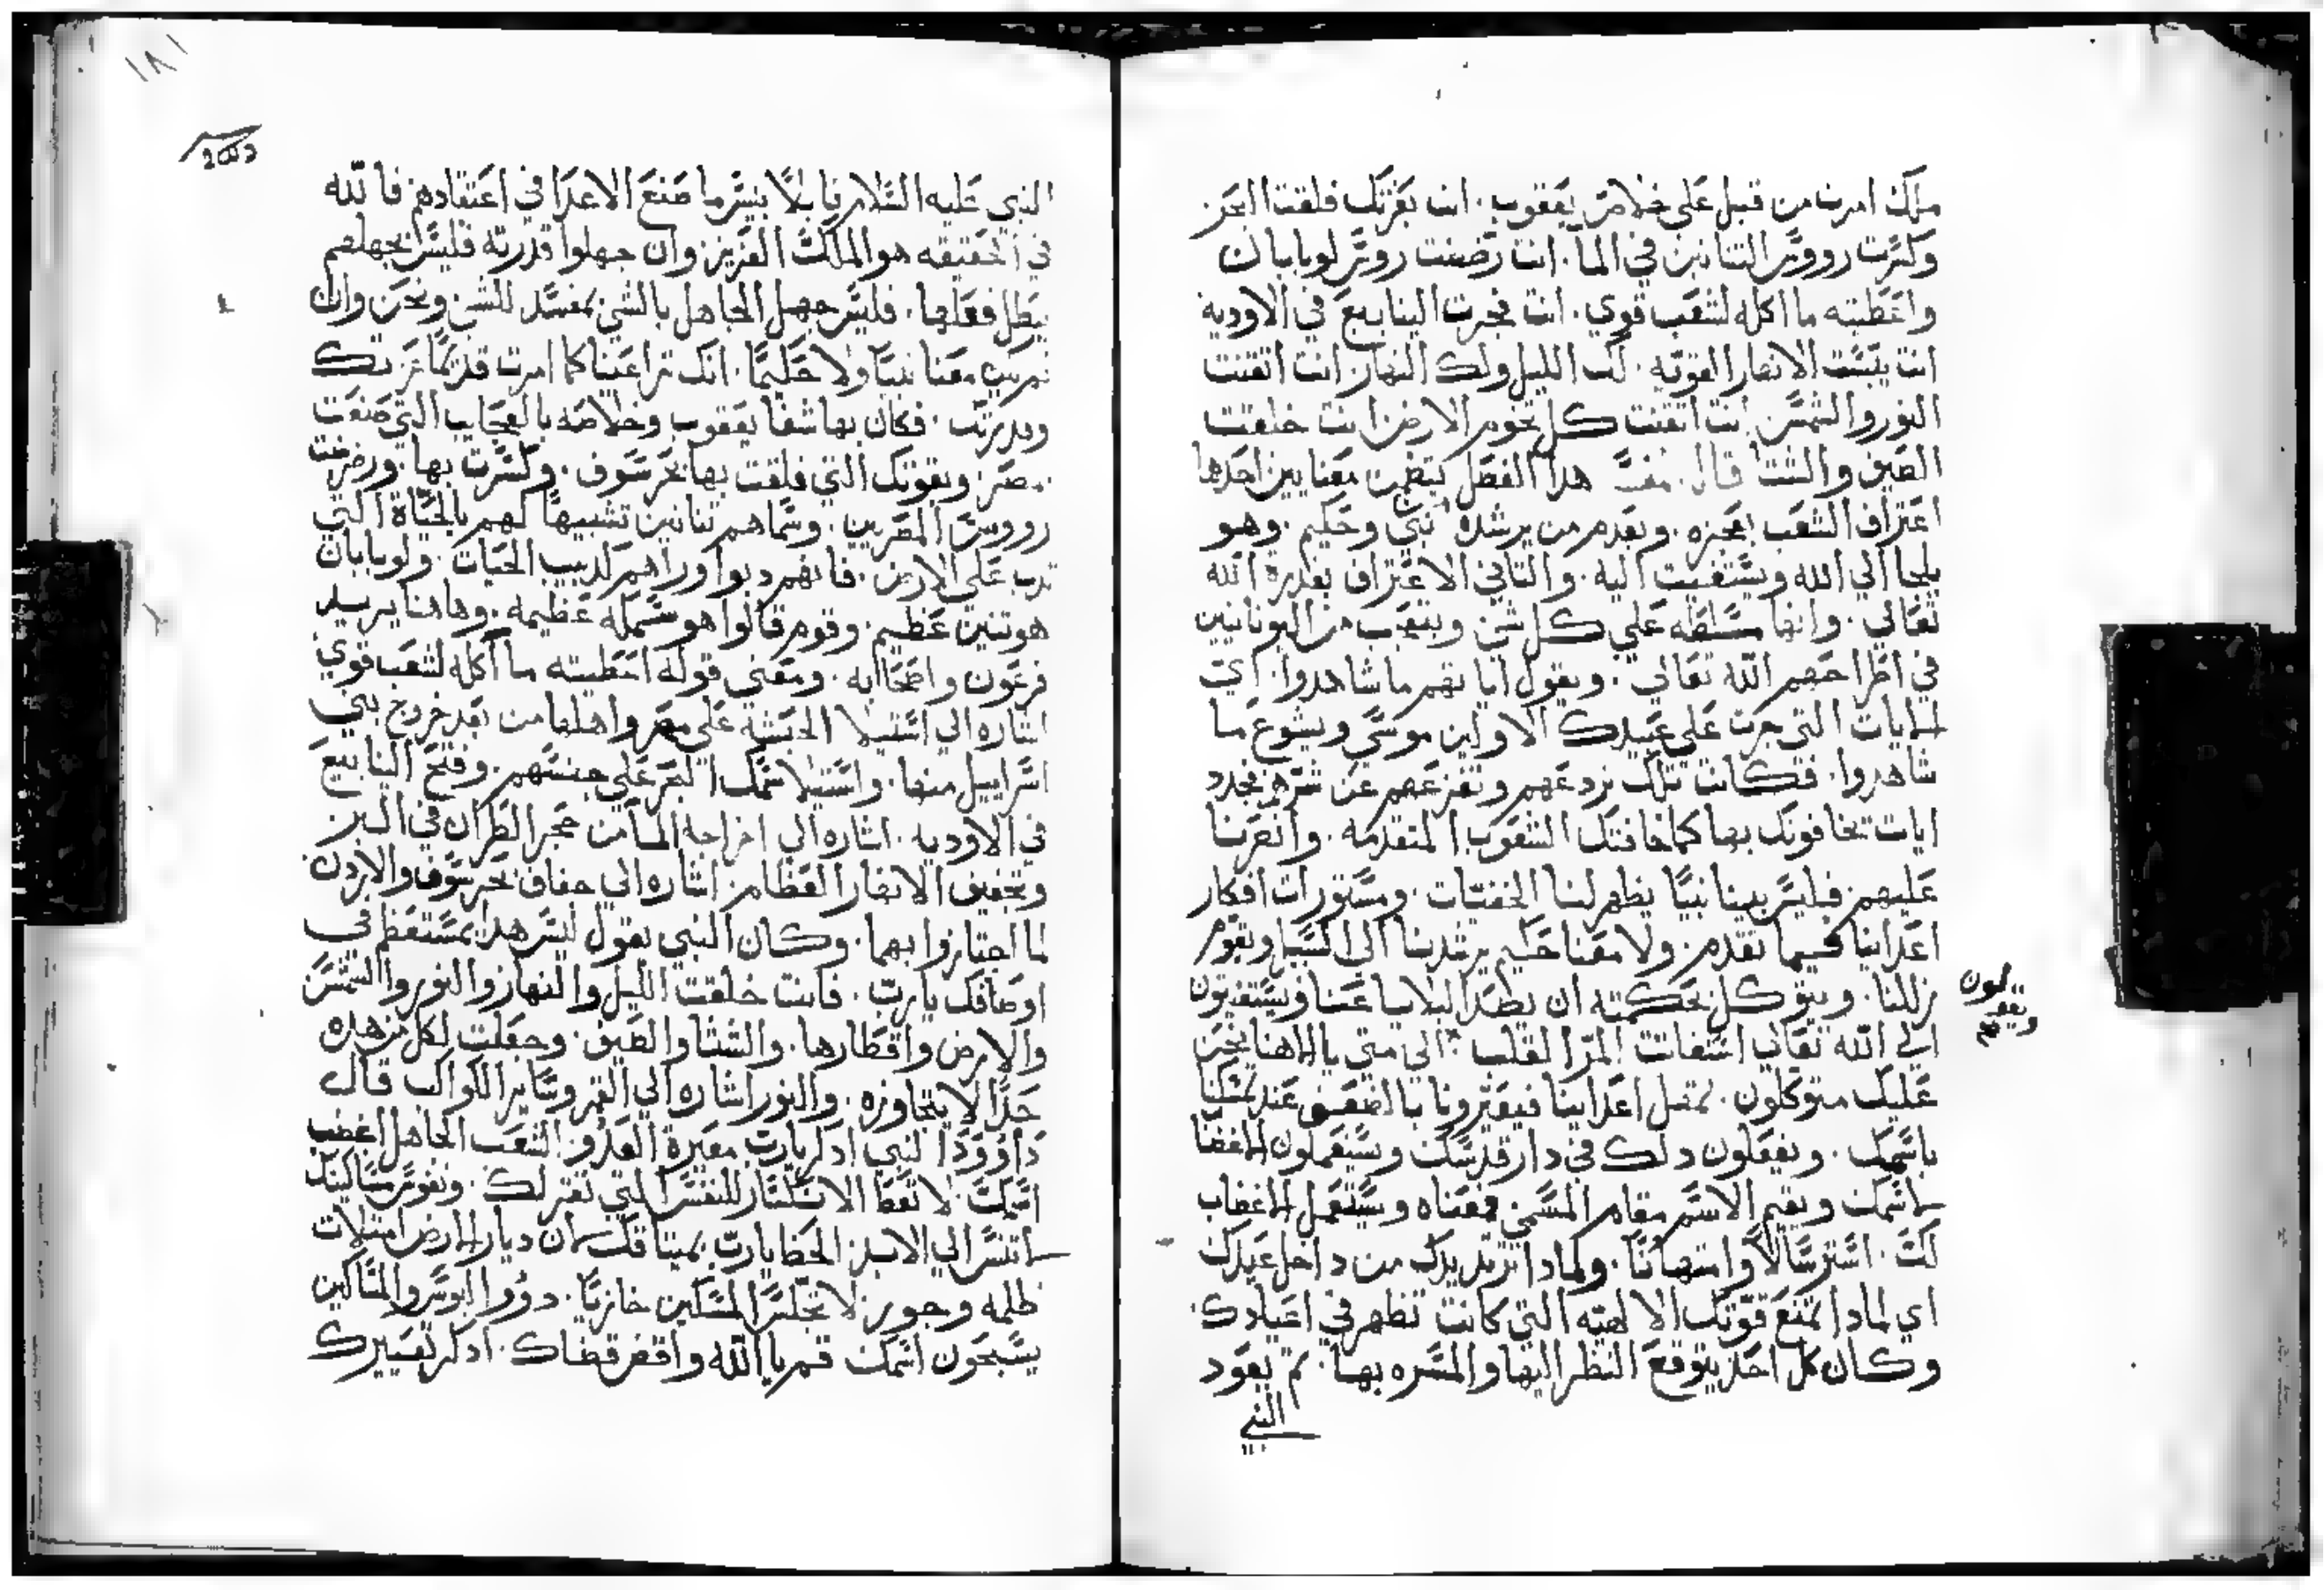 ملك امرت من قبل على خلاص يعقوب. انت بعزتك فلقت البحر.
وكسّرت رووس التنانين في الما. انت رضضت روس لوياتان
واعطيته ماكله لشعب قوي. انت فجرت الينابيع في الاودية
انت يبّست الانهار القويّه. لك الليل ولك النهار. انت اتقنت
النور والشمس انت اتقنت كل تخوم الارض انت خلقت
الصيف والشتا قال مفسّر هدا الفصل يتضمن معنايين احدها
اعتراف الشعب بعجزه. وبعدم من يرشده نبي وحكيم. وهو
يلجا الي الله ويستغيث اليه. والتاني الاعتراف بقدرة الله
تعالي. وانها مسلطه على كل شي ويتعجب من اليونانيين
في اطراحهم الله تعالي. ويقول اياتهم ما شاهدوا. اي
الايات التي جرت على عبيدك الاولين موسى ويشوع ما
شاهدوا. فكانت تلك تردعهم وتفزعهم عن شرهم فجدد
ايات تخافونك بها كما خافتك الشعوب المتقدمه. وانصرنا
عليهم. فليس بيننا نبيّا يظهر لنا الخفيّات. ومستورات افكار
اعداينا فيما تقدم. ولا معنا حكيم يرشدنا الى السبيل ويقوّم
زللنا. ويتوكل بحكمته ان يطرد البلايا عنا ويستغيتون
ويقولون
الي الله تعالي استغاتت المرّ القلب الى متى يا الاهنا نحن
عليك متوكلون. تمهل اعداينا فيعيّرونا بالضعف عند تمسكنا
باسمك. ويفعلون دلك في دار قدسك ويستعملون الاغضا
لاسمك ويقيم الاسم مقام المسمى فمعناه ويستعمل الاغضاب
لك. استرسالاً وامتهانًا. ولمادا ترد يدك من داخل عبدك
اي لمادا تمنع قوّتك الالهيّه التي كانت تظهر في اعيادك
وكان كل احد يتوقع النظر اليها والمسره بها. تم يعود
النبي
١٨١
النبي عليه السّلام قايلاً بيس ما صنع الاعدا في اعتقادهم فالله
في الحقيقه هو الملك العزيز وان جهلوا قدرته فليس بجهلهم
يبطل فعلها. فليس جهل الجاهل بالشي بمفسد للشي ونحن وان
لم يكن معنا نبيّا ولا حكيمًا. انك تراعينا كما امرت قديمًا عزتك
ودبرتك. فكان بها شفا يعقوب وخلاصه بالعجايب التي صنعت
بمصر وبقوتك التي فلقت بها بحر سوف. وكسّرت بها. ورضضت
رووس المصريين. وسّماهم تنانين تشبيهاً لهم بالحيّاة التي
تدب على الارض. فانهم دبوا وراهم كدبيب الحيات. ولوياتان
هو تنين عظيم. وقوم قالوا هو سمكه عظيمه. وهاهنا يريد
فرعون واصحابه. ومعنى قوله اعطيته ماكله لشعب قوي
اشاره الى استيلا الحبشه على مصر واهلها من بعد خروج بني
اسراييل منها. واستيلا سمك البحر على جيشهم. وفتح الينابيع
في الاوديه. اشاره الي اخراجه الما من حجر الطران في البر
وتجفيف الانهار العظام. اشاره الي جفاف بحر سوف والاردن
لما اجتازوا بهما. وكان النبي يقول ليس هدا بمستعظم في
اوصافك يا رب. فانت خلقت الليل والنهار والنور والشمس
والارض واقطارها. والشتا والصيف. وجعلت لكل من هده
حدًّا لا يتجاوزه. والنور اشاره الي القمر وساير الكواكب قال
داوود النبي ادكر يا رب معيرة العدو الشعب الجاهل اغضب
اسمك. لا تعط الانكسار للنفس التي تعترلك. ونفوس مساكينك
لا تنس الي الابد. الحظ يا رب بميتاقك لان ديار الارض امتلات
ظلمه وجور. لا تجلس المسكين خازيًا. دوو البوس والمساكين
يسبحون اسمك قم يا الله واقض قضاك. ادكر تعييرك